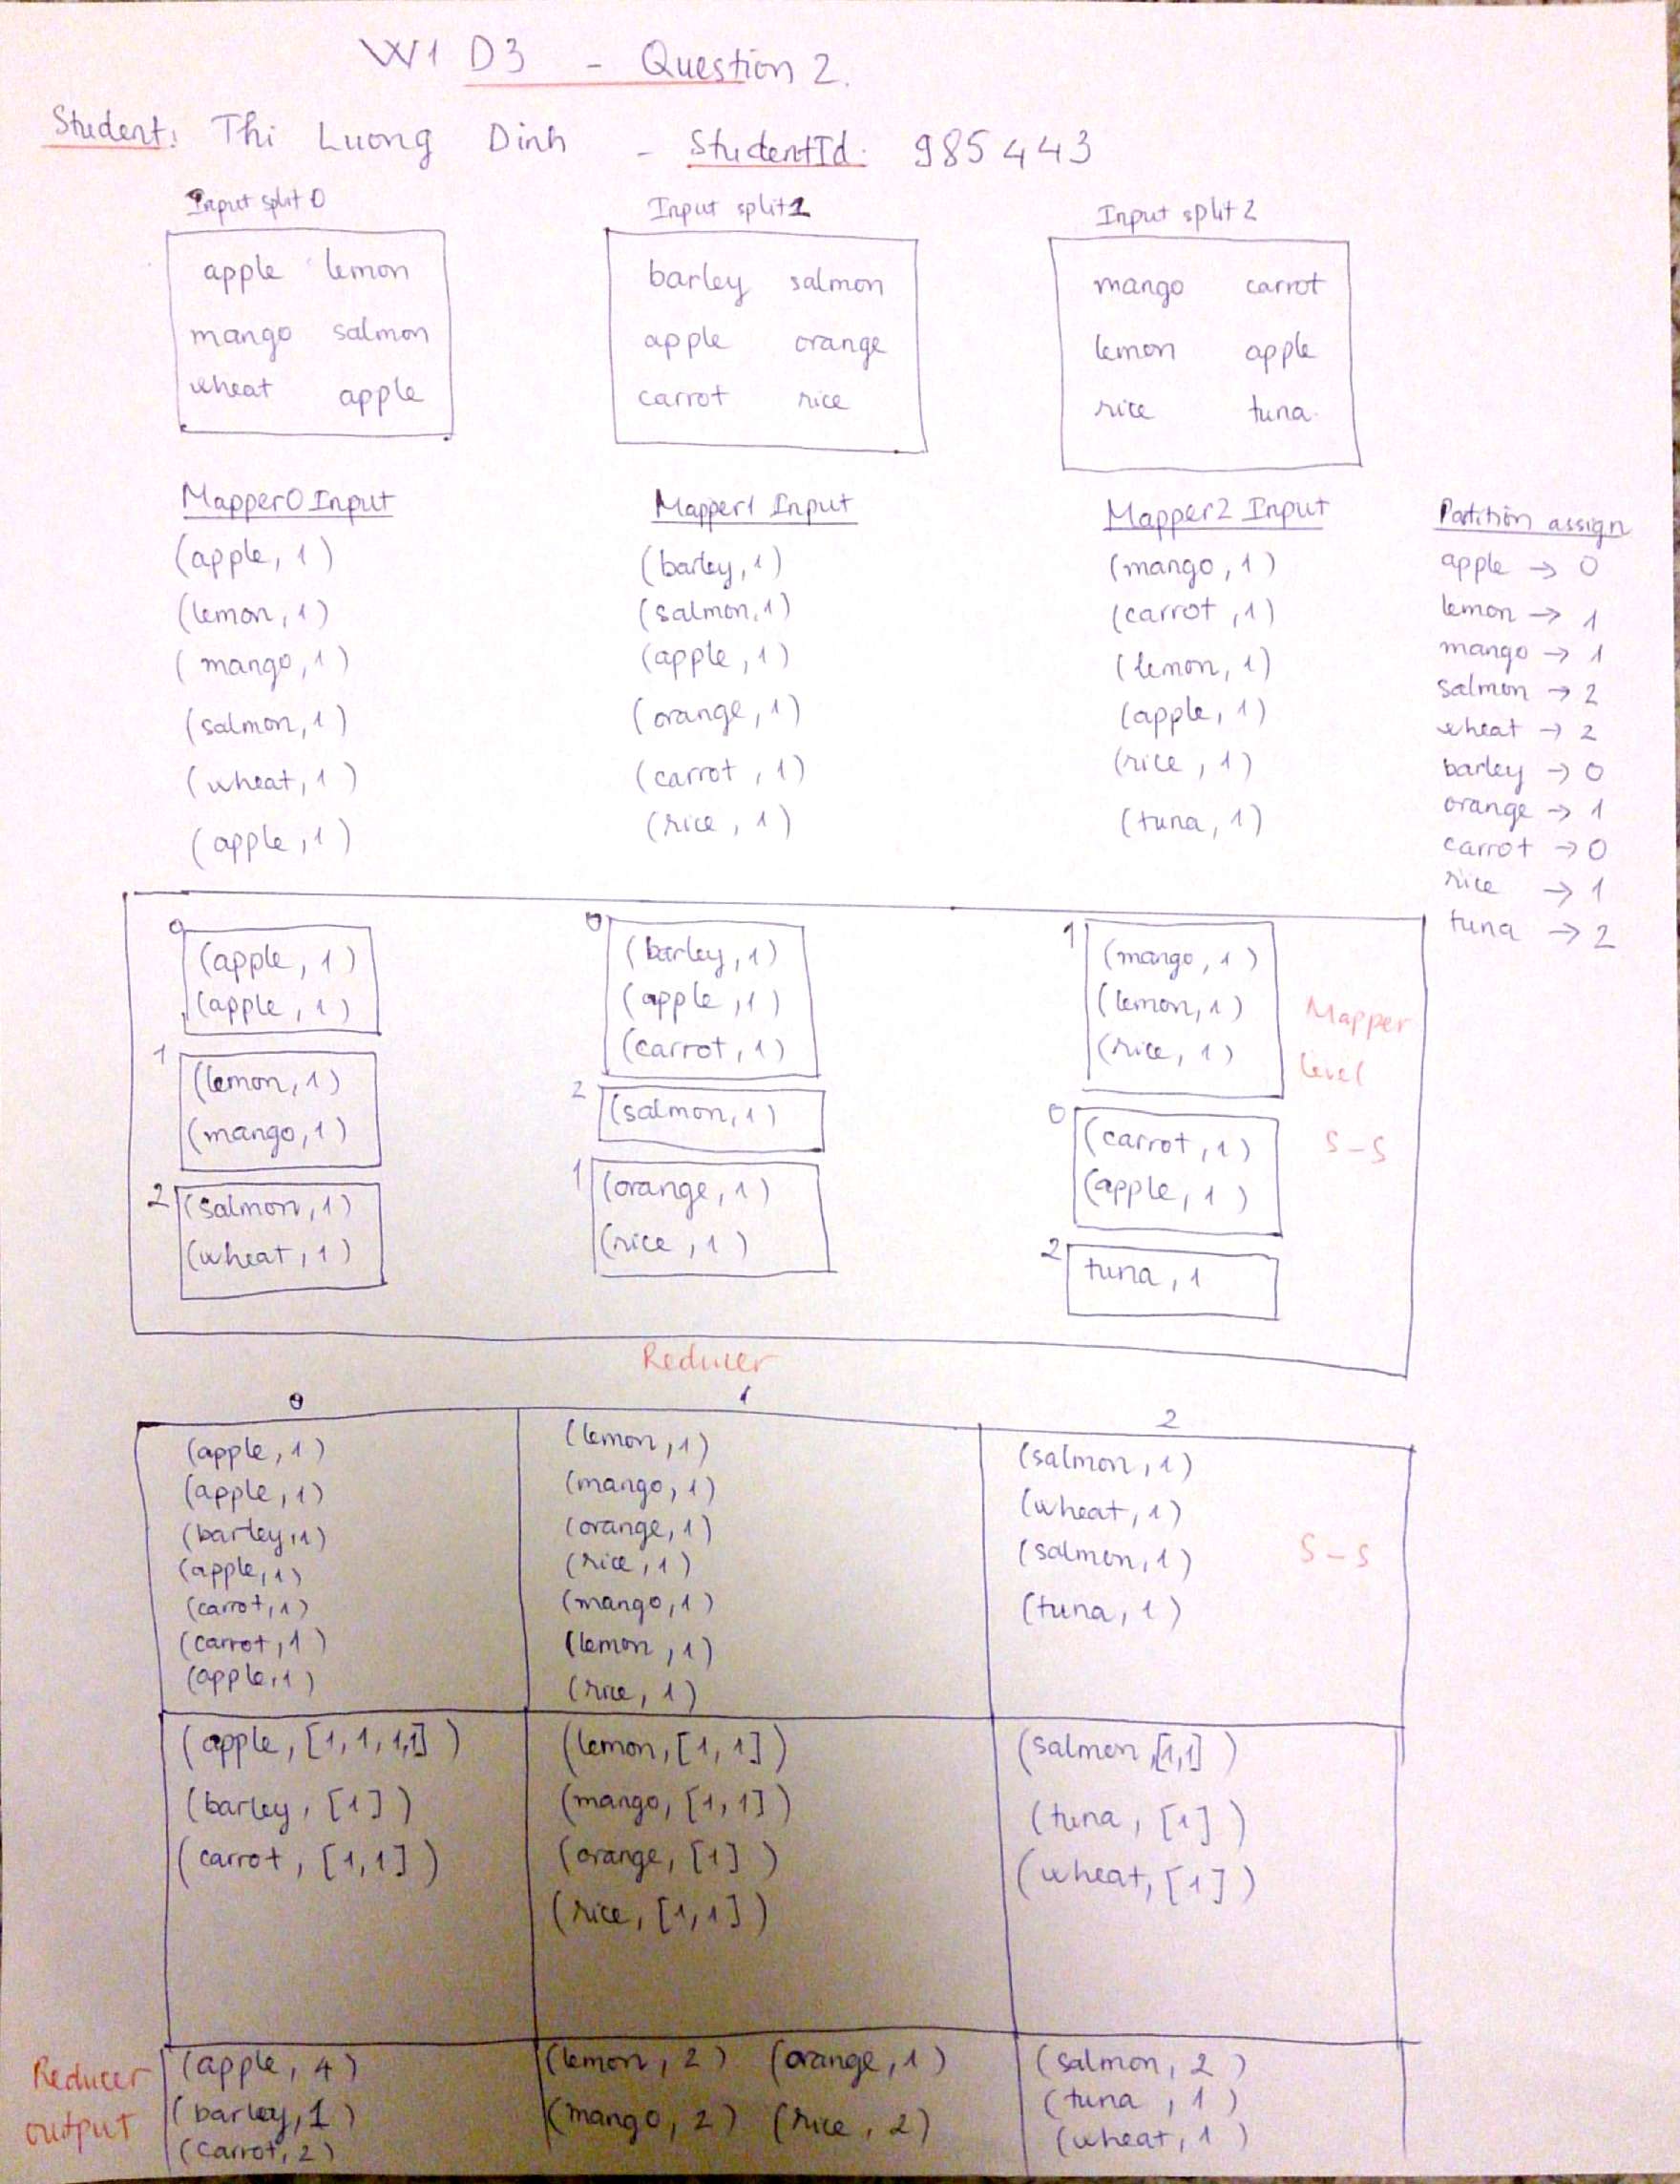 W1 D3 - Question 2.
Student: Thi Luong Dinh - StudentId: 985443
Input split 0
apple lemon
mango salmon
wheat apple
Input split 1
barley salmon
apple orange
carrot rice
Input split 2
mango carrot
lemon apple
rice tuna
Mapper0 Input
(apple, 1)
(lemon, 1)
(mango, 1)
(salmon, 1)
(wheat, 1)
(apple, 1)
Mapper1 Input
(barley, 1)
(salmon, 1)
(apple, 1)
(orange, 1)
(carrot, 1)
(rice, 1)
Mapper2 Input
(mango, 1)
(carrot, 1)
(lemon, 1)
(apple, 1)
(rice, 1)
(tuna, 1)
Partition assign
apple → 0
lemon → 1
mango → 1
salmon → 2
wheat → 2
barley → 0
orange → 1
carrot → 0
rice → 1
tuna → 2
0
(apple, 1)
(apple, 1)
1
(lemon, 1)
(mango, 1)
2
(salmon, 1)
(wheat, 1)
0
(barley, 1)
(apple, 1)
(carrot, 1)
2
(salmon, 1)
1
(orange, 1)
(rice, 1)
1
(mango, 1)
(lemon, 1)
(rice, 1)
0
(carrot, 1)
(apple, 1)
2
tuna, 1
Mapper
level
S-S
Reducer
0
(apple, 1)
(apple, 1)
(barley, 1)
(apple, 1)
(carrot, 1)
(carrot, 1)
(apple, 1)
1
(lemon, 1)
(mango, 1)
(orange, 1)
(rice, 1)
(mango, 1)
(lemon, 1)
(rice, 1)
2
(salmon, 1)
(wheat, 1)
(salmon, 1)
(tuna, 1)
S-S
(apple, [1,1,1,1])
(barley, [1])
(carrot, [1,1])
(lemon, [1,1])
(mango, [1,1])
(orange, [1])
(rice, [1,1])
(salmon, [1,1])
(tuna, [1])
(wheat, [1])
Reducer
output
(apple, 4)
(barley, 1)
(carrot, 2)
(lemon, 2) (orange, 1)
(mango, 2) (rice, 2)
(salmon, 2)
(tuna, 1)
(wheat, 1)